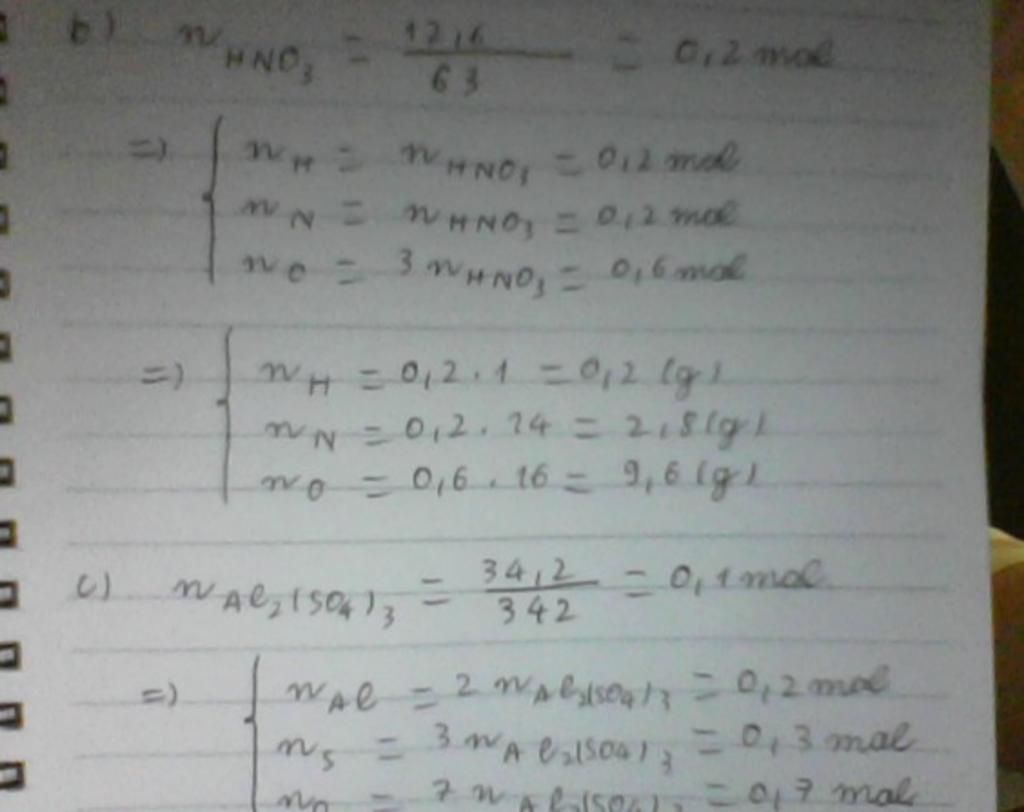 b) n HNO₃ = 12,6 / 63 = 0,2 mol
=) { n H = n HNO₃ = 0,2 mol
n N = n HNO₃ = 0,2 mol
n O = 3 n HNO₃ = 0,6 mol
=) { n H = 0,2 . 1 = 0,2 (g)
n N = 0,2 . 14 = 2,8 (g)
n O = 0,6 . 16 = 9,6 (g)
c) n Al₂(SO₄)₃ = 34,2 / 342 = 0,1 mol
=) { n Al = 2 n Al₂(SO₄)₃ = 0,2 mol
n S = 3 n Al₂(SO₄)₃ = 0,3 mol
n O = 7 n Al₂(SO₄)₃ = 0,7 mol